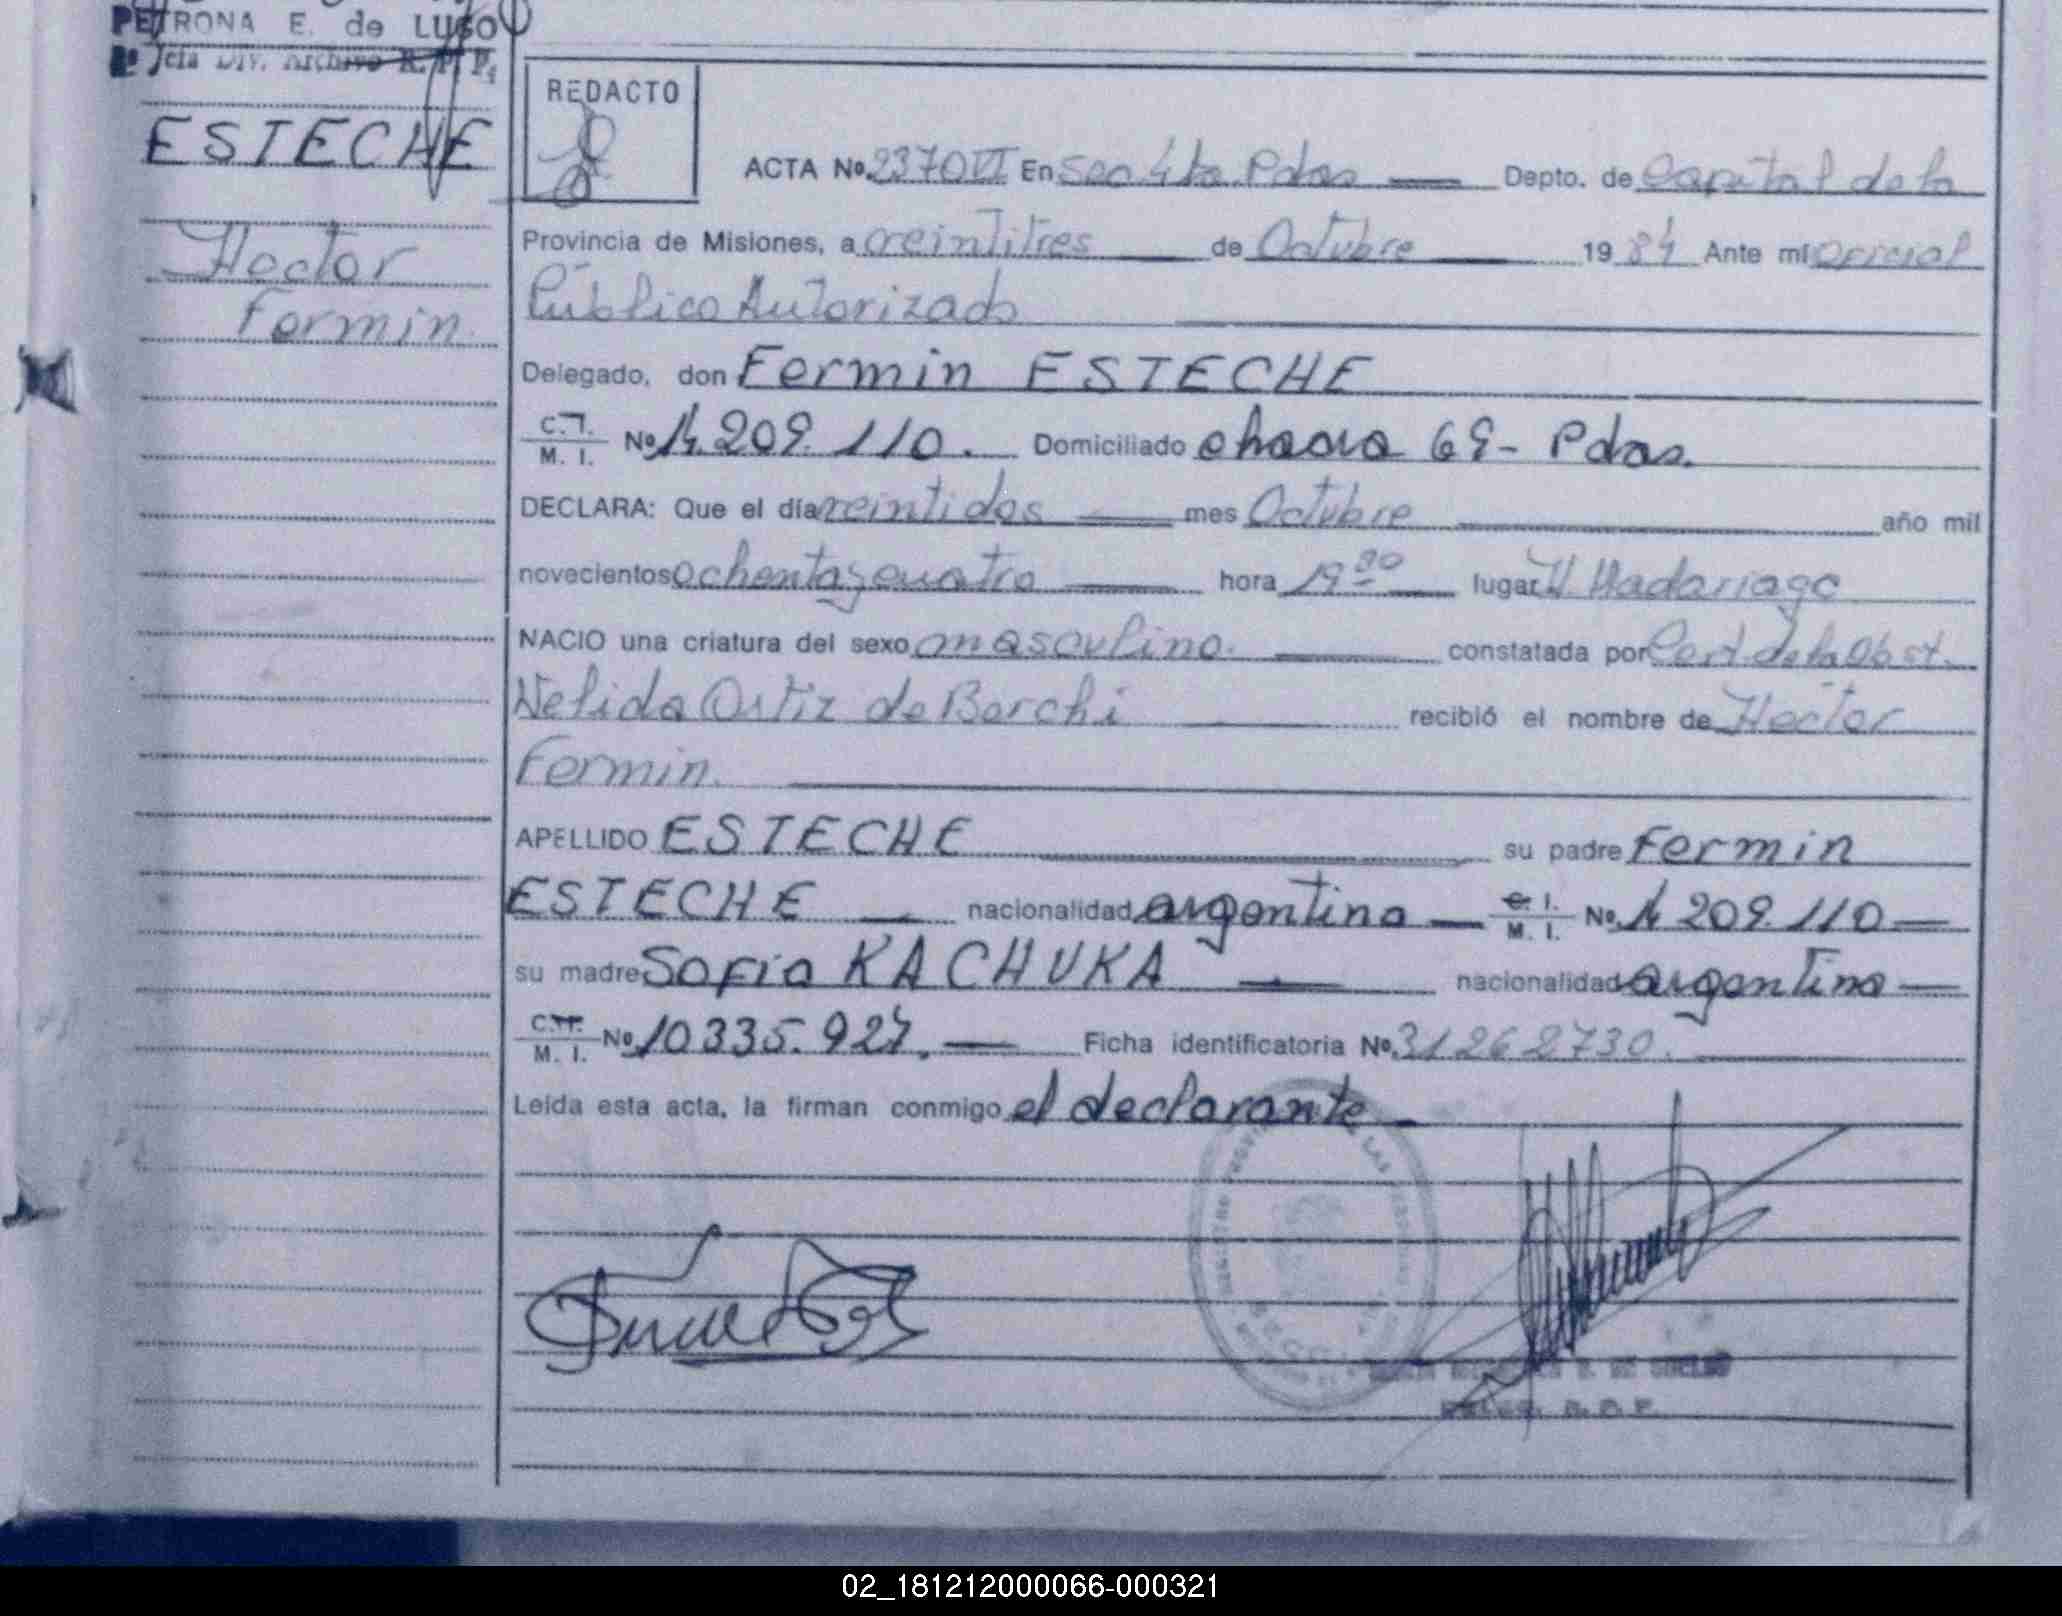 PETRONA E. de LUGO
2ª Jefa Div. Archivo R. P. P.
ESTECHE
Hector
Fermin.
REDACTO
ACTA No. 2370 VI En Sec 4ta Pdas Depto. de Capital de la
Provincia de Misiones, a veintitres de Octubre 1984 Ante mi Oficial
Público Autorizado
Delegado, don Fermin ESTECHE
C. I.
M. I. No 14.209.110. Domiciliado chacra 69- Pdas.
DECLARA: Que el día veintidos mes Octubre año mil
novecientos ochenta y cuatro hora 19 30 lugar H. Madariaga
NACIO una criatura del sexo masculino. constatada por Cert. de la Obst.
Nelida Ortiz de Borchi recibió el nombre de Hector
Fermin.
APELLIDO ESTECHE su padre Fermin
ESTECHE nacionalidad argentina C. I.
M. I. No. 14 209.110
su madre Sofia KACHUKA nacionalidad argentina
C. I.
M. I. No 10335.927. Ficha identificatoria No. 31262730.
Leída esta acta, la firman conmigo el declarante
02_181212000066-000321